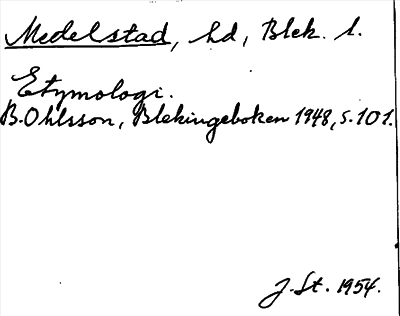 Medelstad, hd, Blek. l.
Etymologi.
B. Ohlsson, Blekingeboken 1948, s. 101.
J. St. 1954.